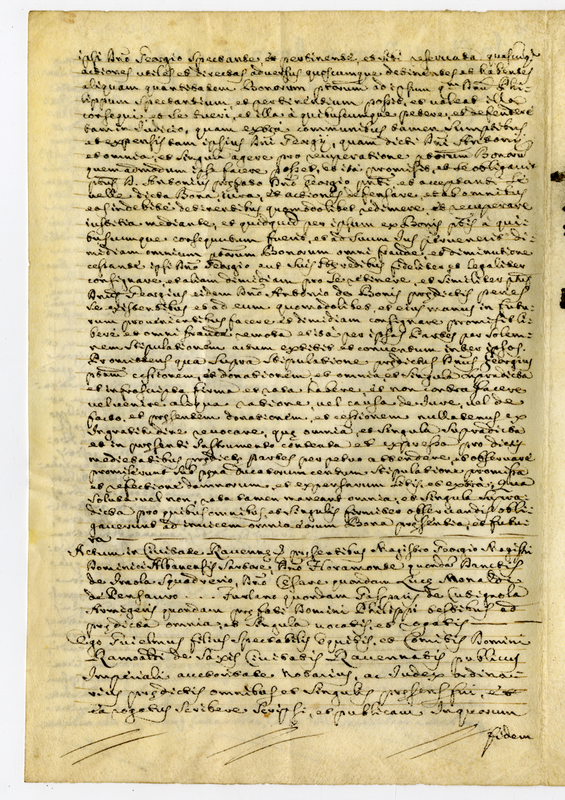 ipsi Dno Georgio spectante, et pertinente, et sibi reservata quascunq
actiones utiles et directas adversus quoscumque detinentes et habentes
aliquam quantitatem Bonorum ptorum ad ipsum qm Dnm Phi-
lippum spectantium, et pertinentium possit, et valeat illa
consequi, et se tueri, et illa à quibuscumque petere, et defendere
tam in Iudicio, quam extra communibus tamen sumptibus,
et expensis tam ipsius Dni Georgij, quam dicti Dni Antonij
et omnia, et singula agere pro recuperatione dictorum Bonorum
quemadmodum ipse facere posset, et ita promisit, et se obligavit
ptus D. Antonius prefato Dno Georgio pnti, et acceptanti se
velle dicta Bona, iura, et actiones defensare, et ab omnibus
ea indebite detinentibus quomodolibet redimere, et recuperare
iustitia mediante, et quicquid per ipsum ex Bonis ptis à qui-
buscumque consequutum fuerit, et ad suum Ius pervenerit di-
midiam omnium ptorum Bonorum omni fraude, et diminutione
cessante ipsi Dno Georgio aut suis Heredibus fideliter et legaliter
consignare, et aliam dimidiam pro se retinere, et similiter ptus
Dnus Georgius eidem Dno Antonio de Bonis predictis penes
se existentibus et ad eum quomodolibet et eius manus in futu-
rum proventientibus facere, et dimidiam consignare promisit li-
bere et omni fraude remota et ita per ipsas Partes per solem-
nem stipulationem actum extitit et conventum inter ipsos
Promittens qua supra stipulatione predictus Dnus Georgius
ptam cessionem, et donationem et omnia, et singula narrata
et infrascripta firma et rata habere, et non contra facere,
vel venire aliqua ratione, vel causa de Iure, vel de
facto, et presentem donationem, et cessionem nullatenus ex
Ingratitudine revocare, que omnia, et singula supradicta
et in presenti Instrumento contenta et expressa pro dictis
medietatibus predicte partes perpetuo attendere, et observare
promiserunt sub pena ducatorum centum stipulatione promissa
et refectione damnorum, et expensarum litis, et extra; Qua
soluta vel non, rata tamen maneant omnia, et singula supra-
dicta pro quibus omnibus et singulis firmiter observandis obli-
gaverunt ad invicem omnia eorum Bona presentia, et futu-
ra
Actum in Civitate Ravennae presentibus Magistro Georgio Magistri
Dominici Albanensis sartore, Dno Floramonte quondam
de Imola Squadrerio, Dno Cesare quondam Luce
de Pensauro .... Furlano quondam Gasparis de Cudignola
Armigeris quondam prefati Domini Philippi testibus ad
predicta omnia, et singula vocatis, et rogatis
Ego Guielmus filius Spectabilis Equitis, et Comitis Domini
Ramondi de Saxis Civitatis Ravennatis publicus
Imperiali auctoritate Notarius, ac Iudex ordina-
rius predictis omnibus et singulis presens fui, et
ea rogatus scribere scripsi, et publicavi In quorum
fidem